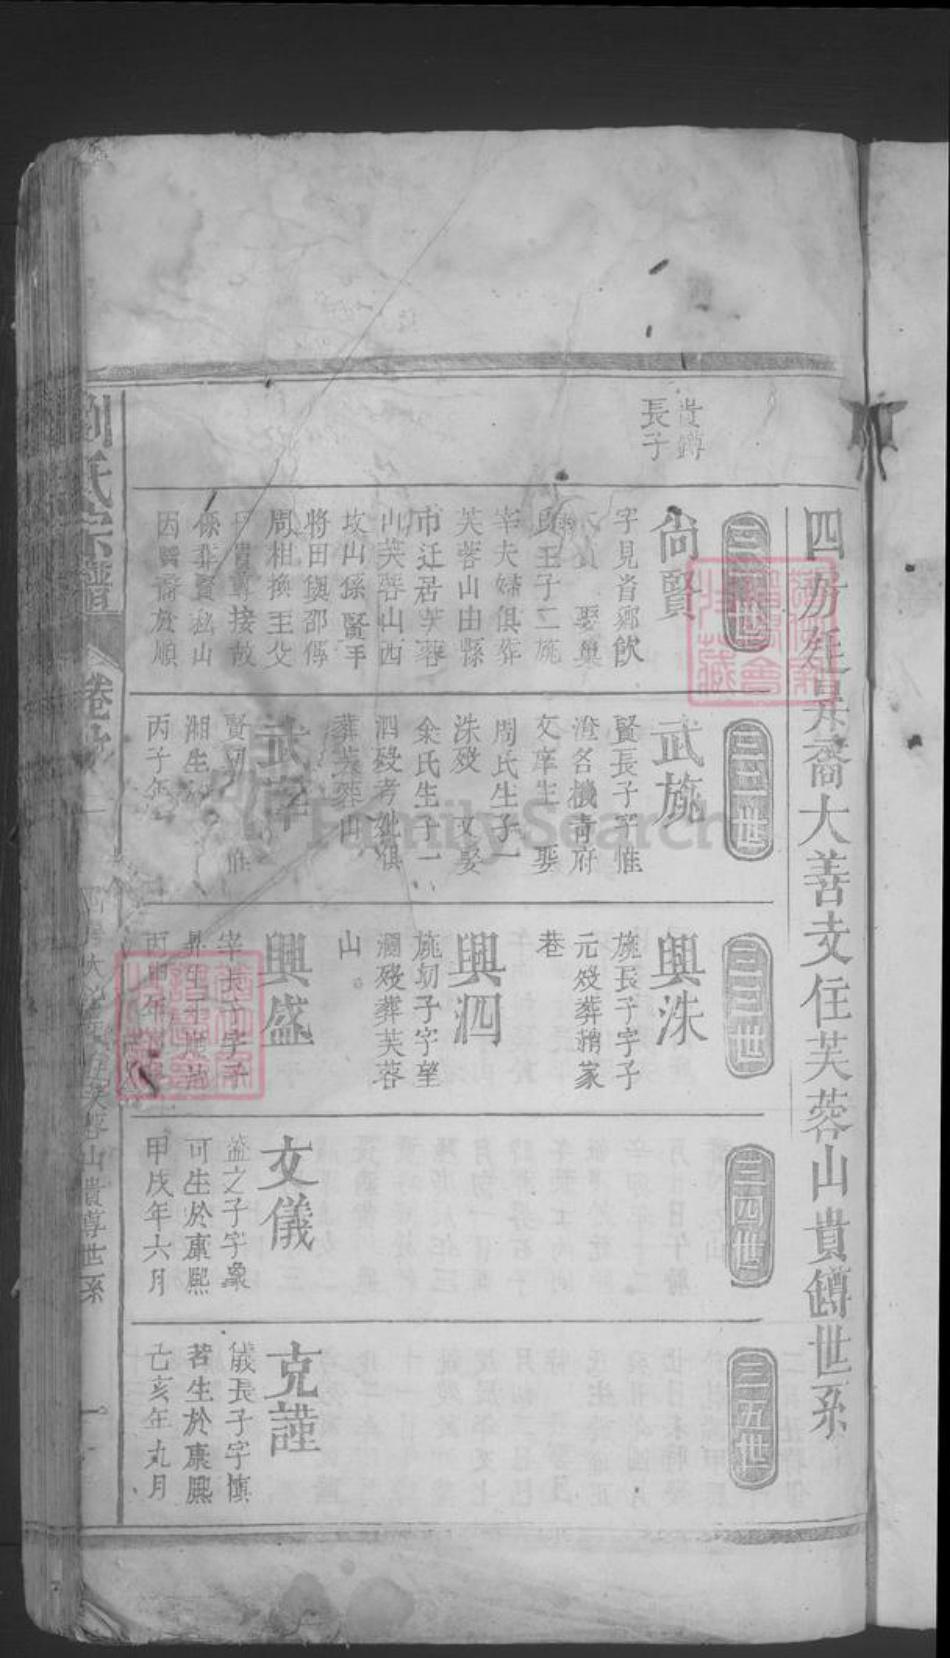 四房廷昇裔大善支住芙蓉山貴鐏世系
貴鐏
長子
三一世
尚賢
字見肖鄉飲
娶巢
氏生子二施
宰夫婦俱葬
芙蓉山由縣
市迁居芙蓉
山芙蓉山西
坟山係賢手
將田與邵傅
周相換至父
貴尊接故
條葬賢於山
因賢裔於順
三二世
武施
賢長子字惟
澄名機青府
文庠生 娶
周氏生子一
洙歿 又娶
粂氏生子一
泗歿考妣俱
葬芙蓉山
武宰
賢次子 惟
湘生
丙子年
三三世
興洙
施長子字子
元歿葬蔣家
巷
興泗
施次子字望
瀾歿葬芙蓉
山。
興盛
宰長子字子
昇生於順治
丙申年
三四世
文儀
盛之子字象
可生於康熙
甲戌年六月
三五世
克謹
儀長子字慎
若生於康熙
己亥年九月
劉氏宗譜
卷
四房大善支住芙蓉山貴尊世系
一
FamilySearch